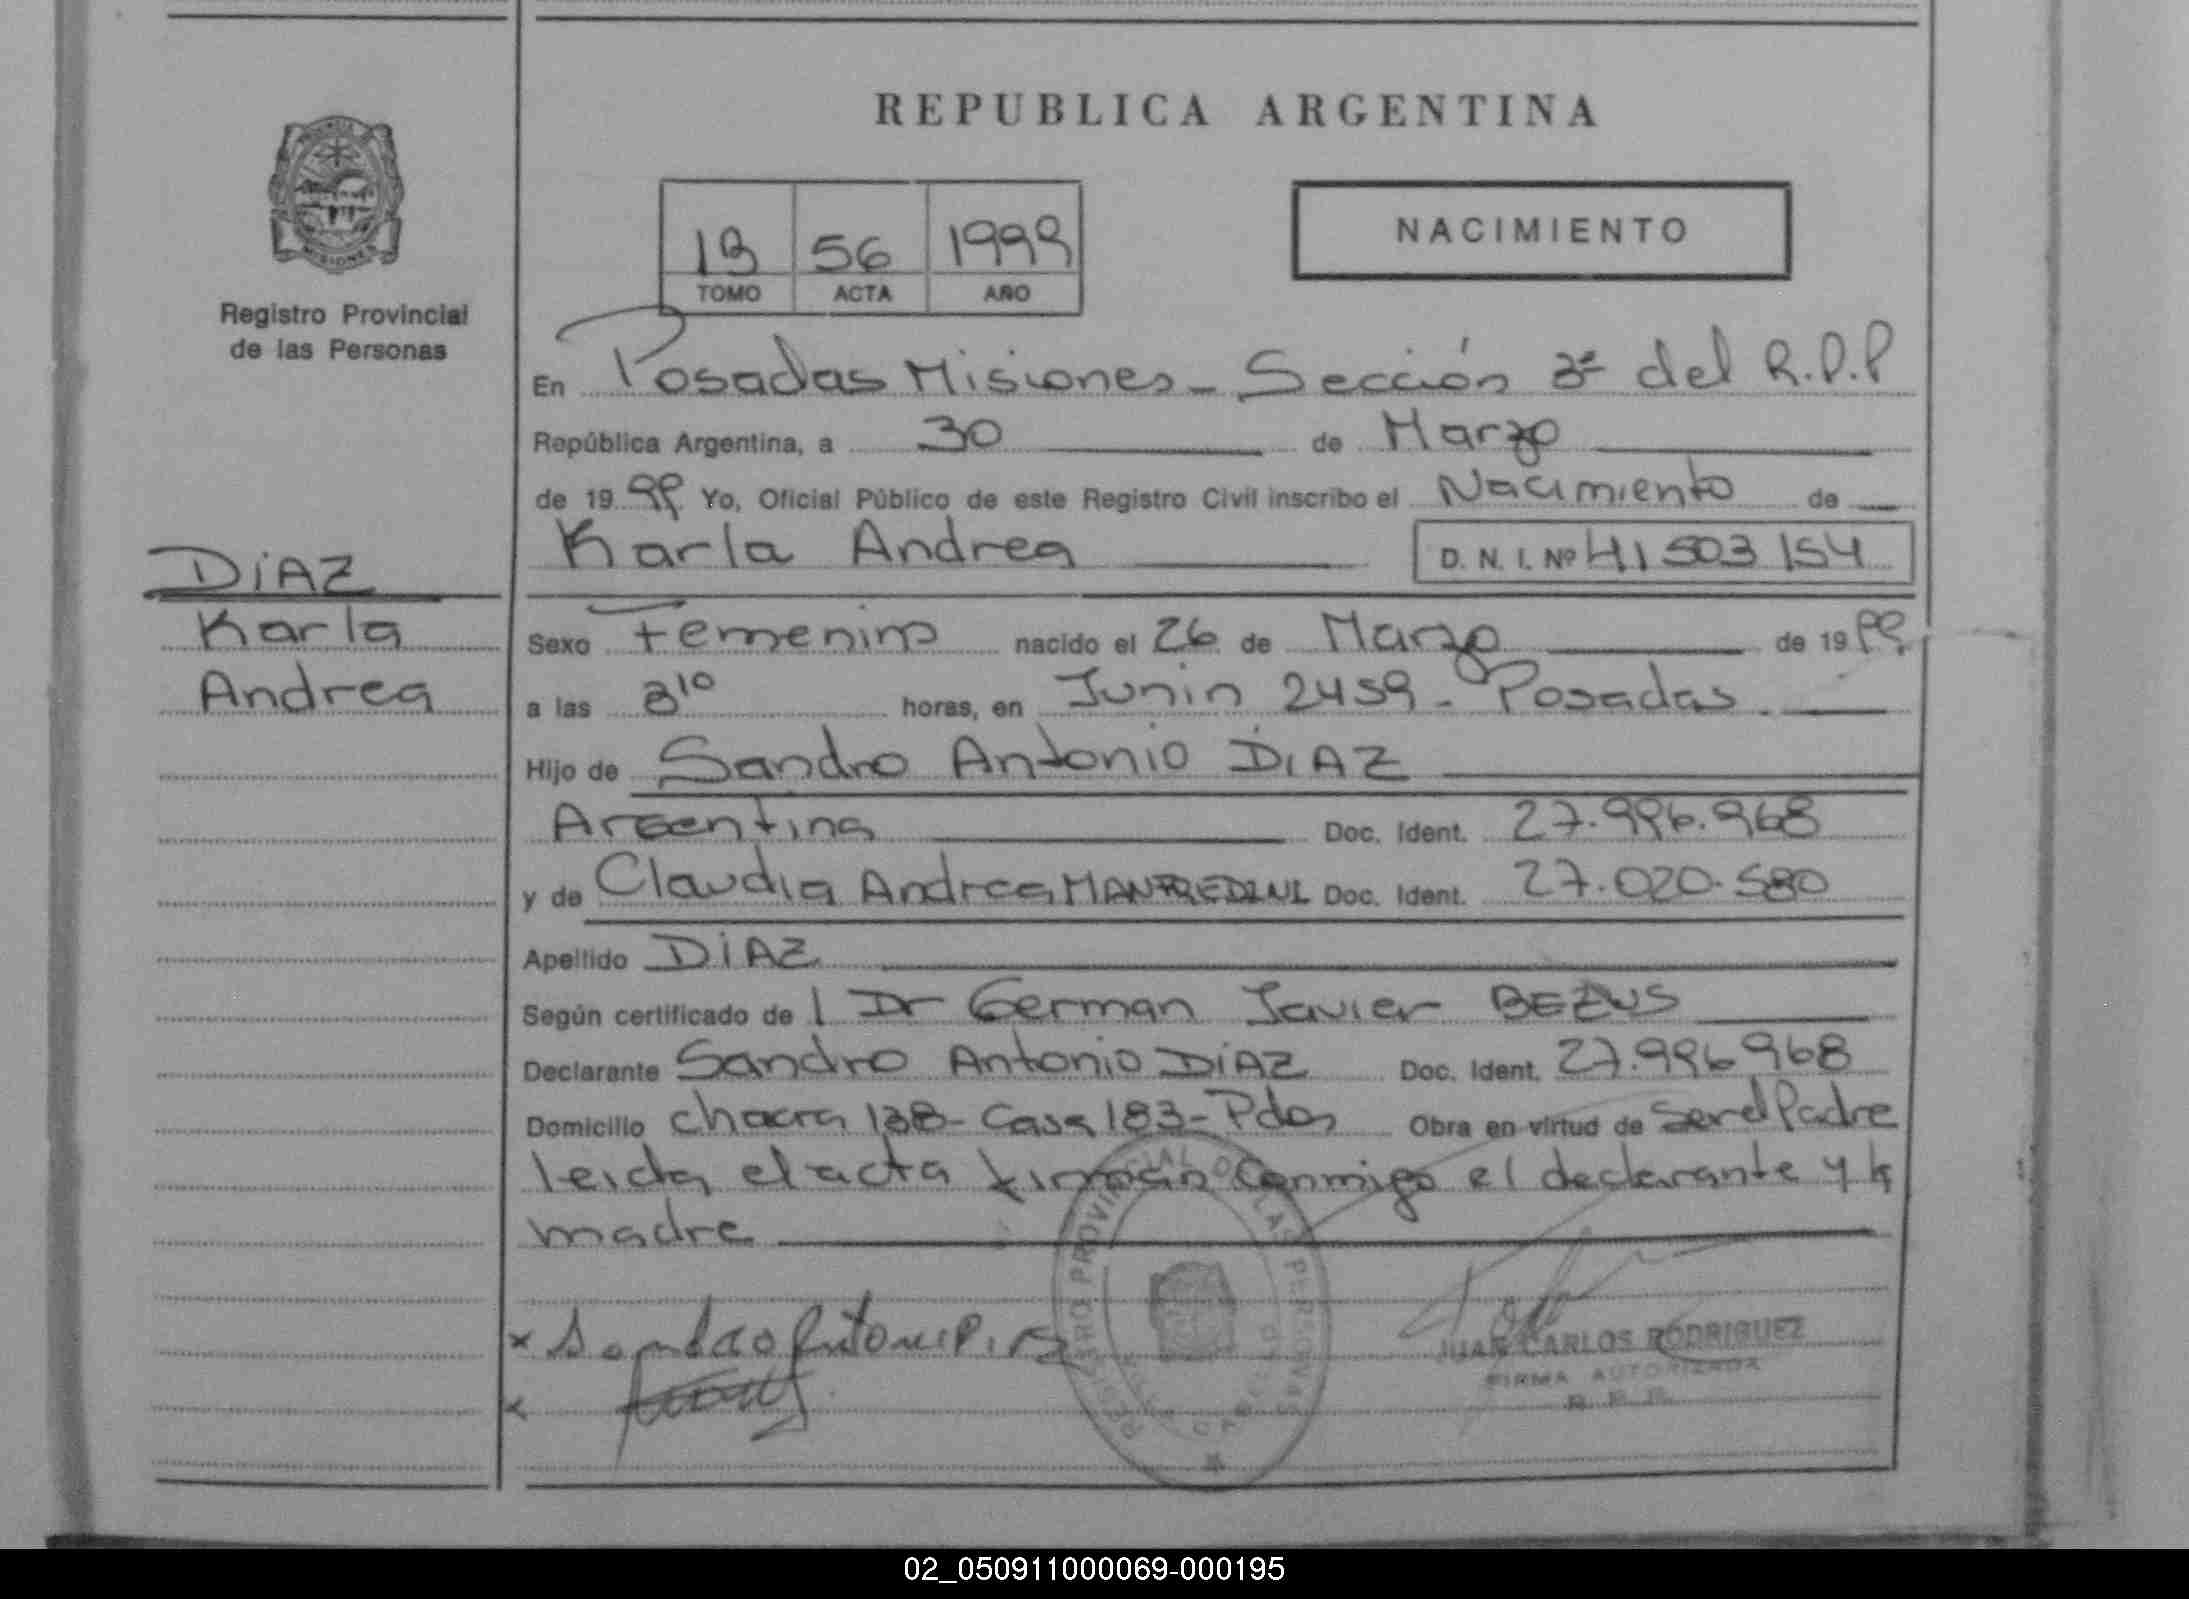 REPUBLICA ARGENTINA
PROVINCIA
MISIONES
Registro Provincial
de las Personas
1B 56 1999
TOMO ACTA AÑO
NACIMIENTO
En Posadas Misiones - Sección 3ª del R.P.P
República Argentina, a 30 de Marzo
de 1999 Yo, Oficial Público de este Registro Civil inscribo el Nacimiento de
Karla Andrea D. N. I. Nº 41503154
DiAZ
Karla
Andrea
Sexo Femenino nacido el 26 de Marzo de 1999
a las 8¹⁰ horas, en Junin 2459 - Posadas.
Hijo de Sandro Antonio DiAZ
Argentina Doc. Ident. 27.996.968
y de Claudia Andrea MANFREDINI Doc. Ident. 27.020.580
Apellido DiAZ
Según certificado de l Dr German Javier BEZUS
Declarante Sandro Antonio DiAZ Doc. Ident. 27.996968
Domicilio chacra 138 - Casa 183 - Pdas Obra en virtud de Ser el Padre
leida el acta firman Conmigo el declarante y la
madre
REGISTRO PROVINCIAL DE LAS PERSONAS
x Sandro Antonio Diaz
x
JUAN CARLOS RODRIGUEZ
FIRMA AUTORIZADA
R. P. P.
02_050911000069-000195